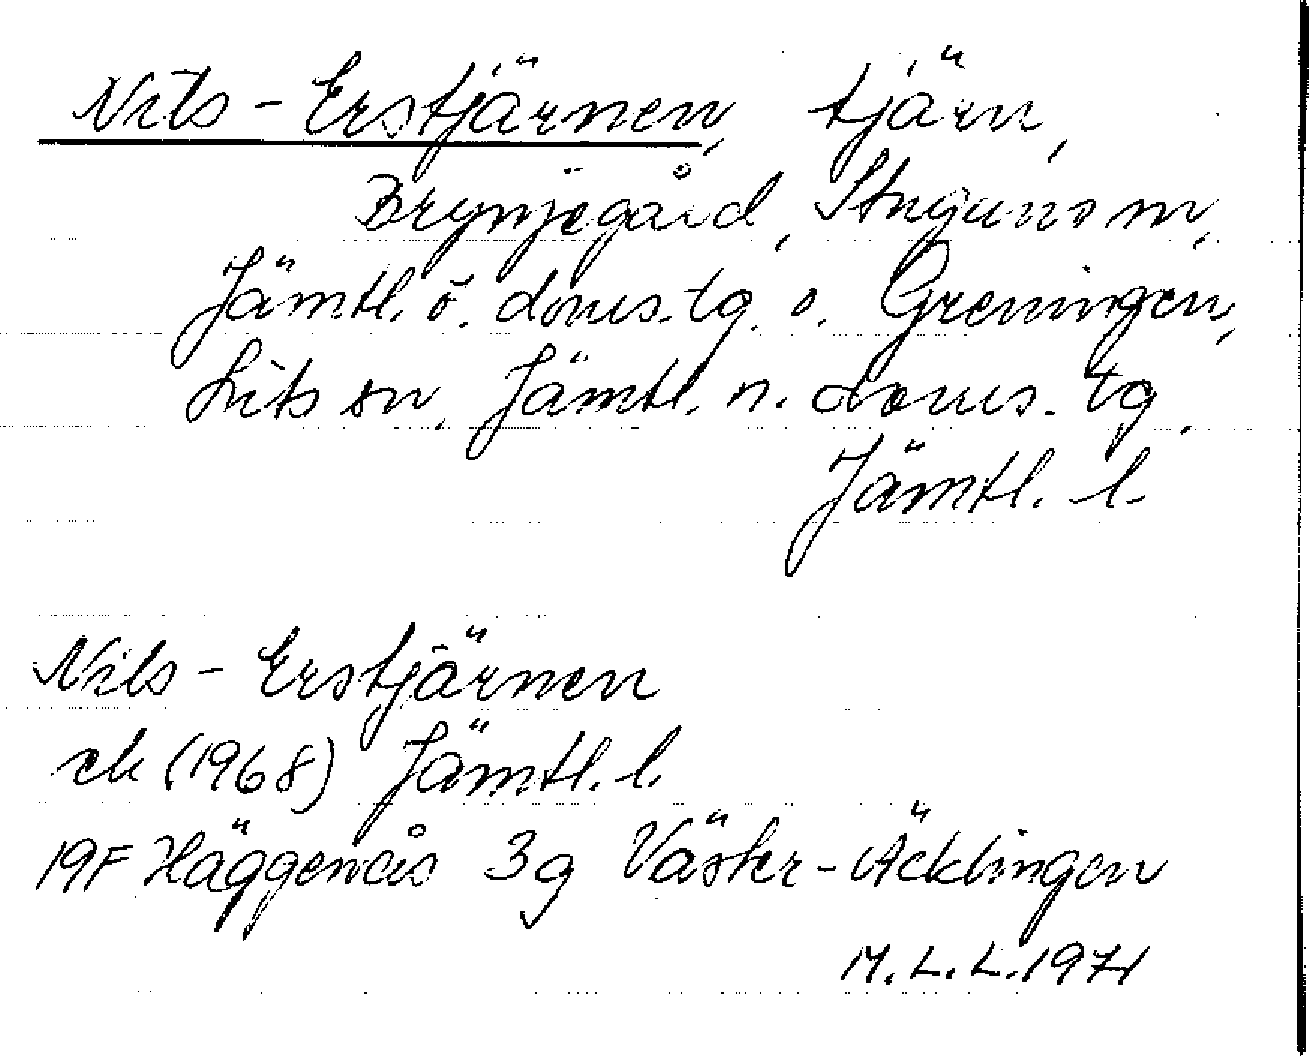 Nils-Erstjärnen, tjärn,
Brynjegård, Stuguns sn,
Jämtl. ö. doms. tg. o. Greningen,
Lits sn, Jämtl. n. doms. tg,
Jämtl. l.
Nils-Erstjärnen
ek (1968) Jämtl. l.
19F Häggenås 3g Väster-Äcklingen
M.L.L. 1971